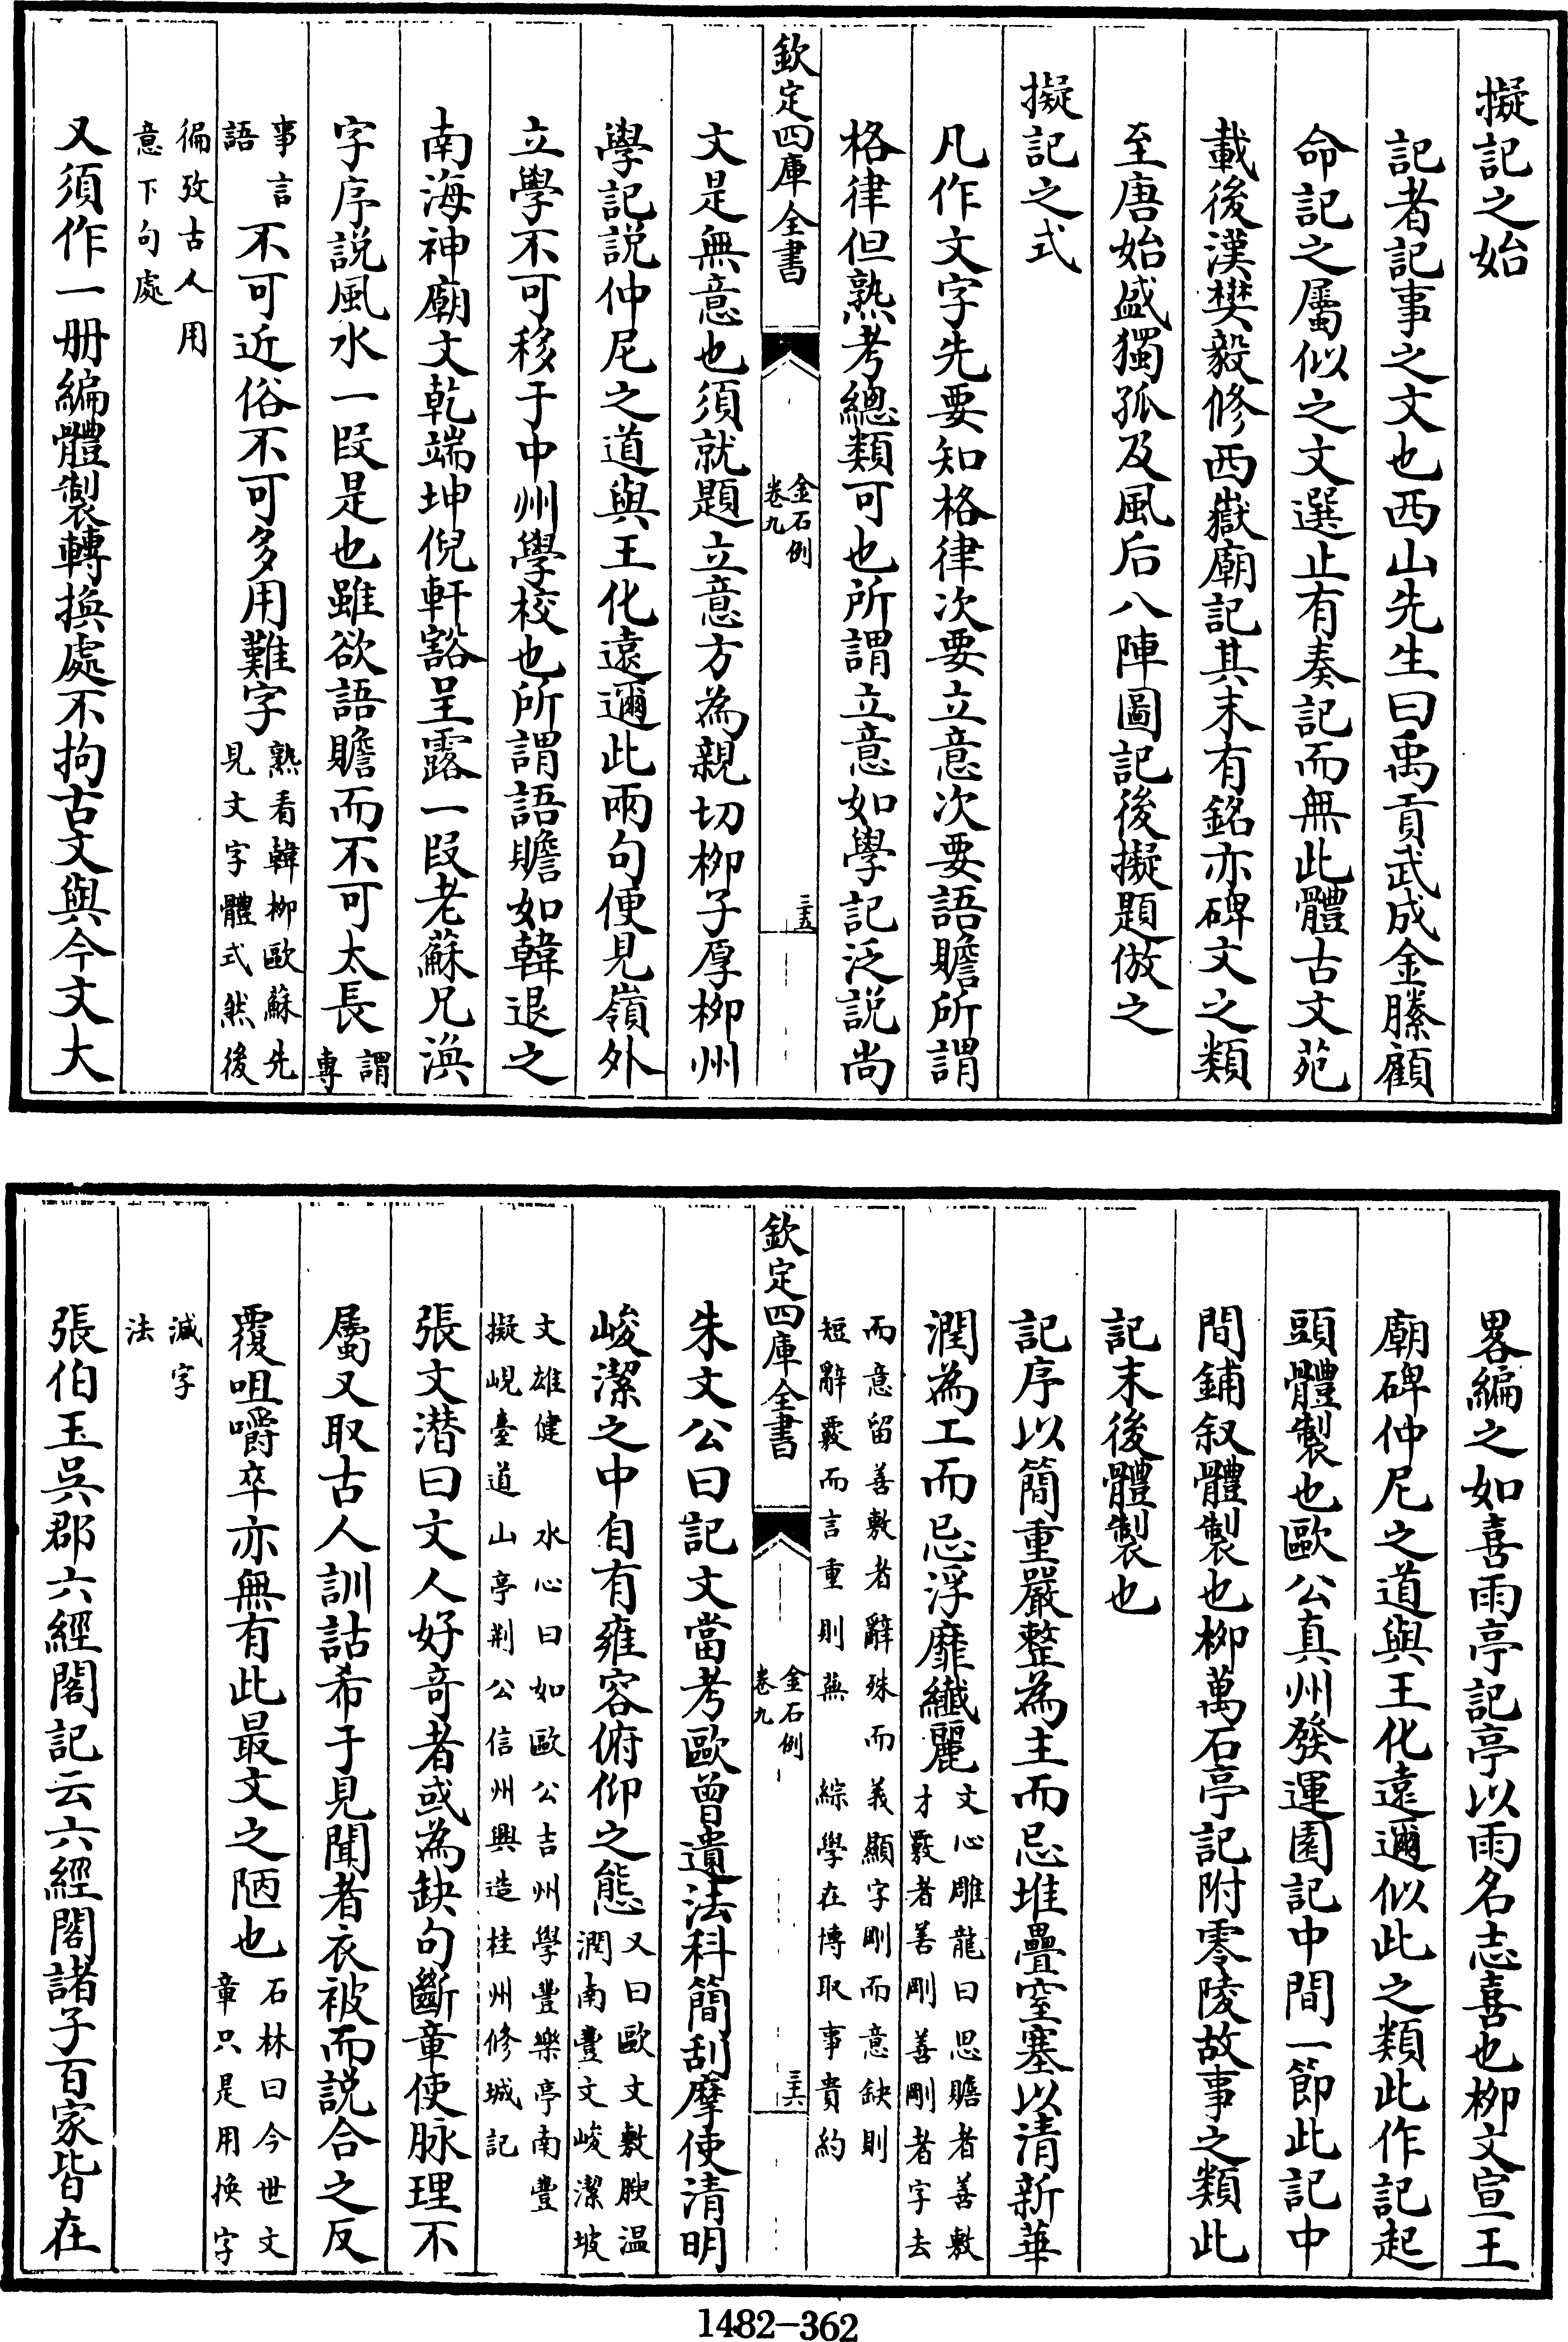 擬記之始
記者記事之文也西山先生曰禹貢武成金縢顧
命記之屬似之文選止有奏記而無此體古文苑
載後漢樊毅修西嶽廟記其末有銘亦碑文之類
至唐始盛獨孤及風后八陣圖記後擬題倣之
擬記之式
凡作文字先要知格律次要立意次要語贍所謂
格律但熟考總類可也所謂立意如學記泛説尚
欽定四庫全書
金石例
卷九
三五
文是無意也須就題立意方為親切柳子厚柳州
學記説仲尼之道與王化遠邇此兩句便見嶺外
立學不可移于中州學校也所謂語贍如韓退之
南海神廟文乾端坤倪軒豁呈露一段老蘇兄渙
字序説風水一段是也雖欲語贍而不可太長謂
專
事言
語
不可近俗不可多用難字熟看韓柳歐蘇先
見文字體式然後
徧攷古人用
意下句處
又須作一册編體製轉換處不拘古文與今文大
畧編之如喜雨亭記亭以雨名志喜也柳文宣王
廟碑仲尼之道與王化遠邇似此之類此作記起
頭體製也歐公真州發運園記中間一節此記中
間鋪叙體製也柳萬石亭記附零陵故事之類此
記末後體製也
記序以簡重嚴整為主而忌堆疊窒塞以清新華
潤為工而忌浮靡纖麗文心雕龍曰思贍者善敷
才覈者善刪善刪者字去
而意留善敷者辭殊而義顯字刪而意缺則
短辭覈而言重則蕪綜學在博取事貴約
欽定四庫全書
金石例
卷九
三六
朱文公曰記文當考歐曾遺法科簡刮摩使清明
峻潔之中自有雍容俯仰之態又曰歐文敷腴温
潤南豐文峻潔坡
文雄健水心曰如歐公吉州學豐樂亭南豐
擬峴臺道山亭荆公信州興造桂州修城記
張文潛曰文人好奇者或為缺句斷章使脉理不
屬又取古人訓詁希于見聞者衣被而説合之反
覆咀嚼卒亦無有此最文之陋也石林曰今世文
章只是用換字
減字
法
張伯玉吳郡六經閣記云六經閣諸子百家皆在
1482-362